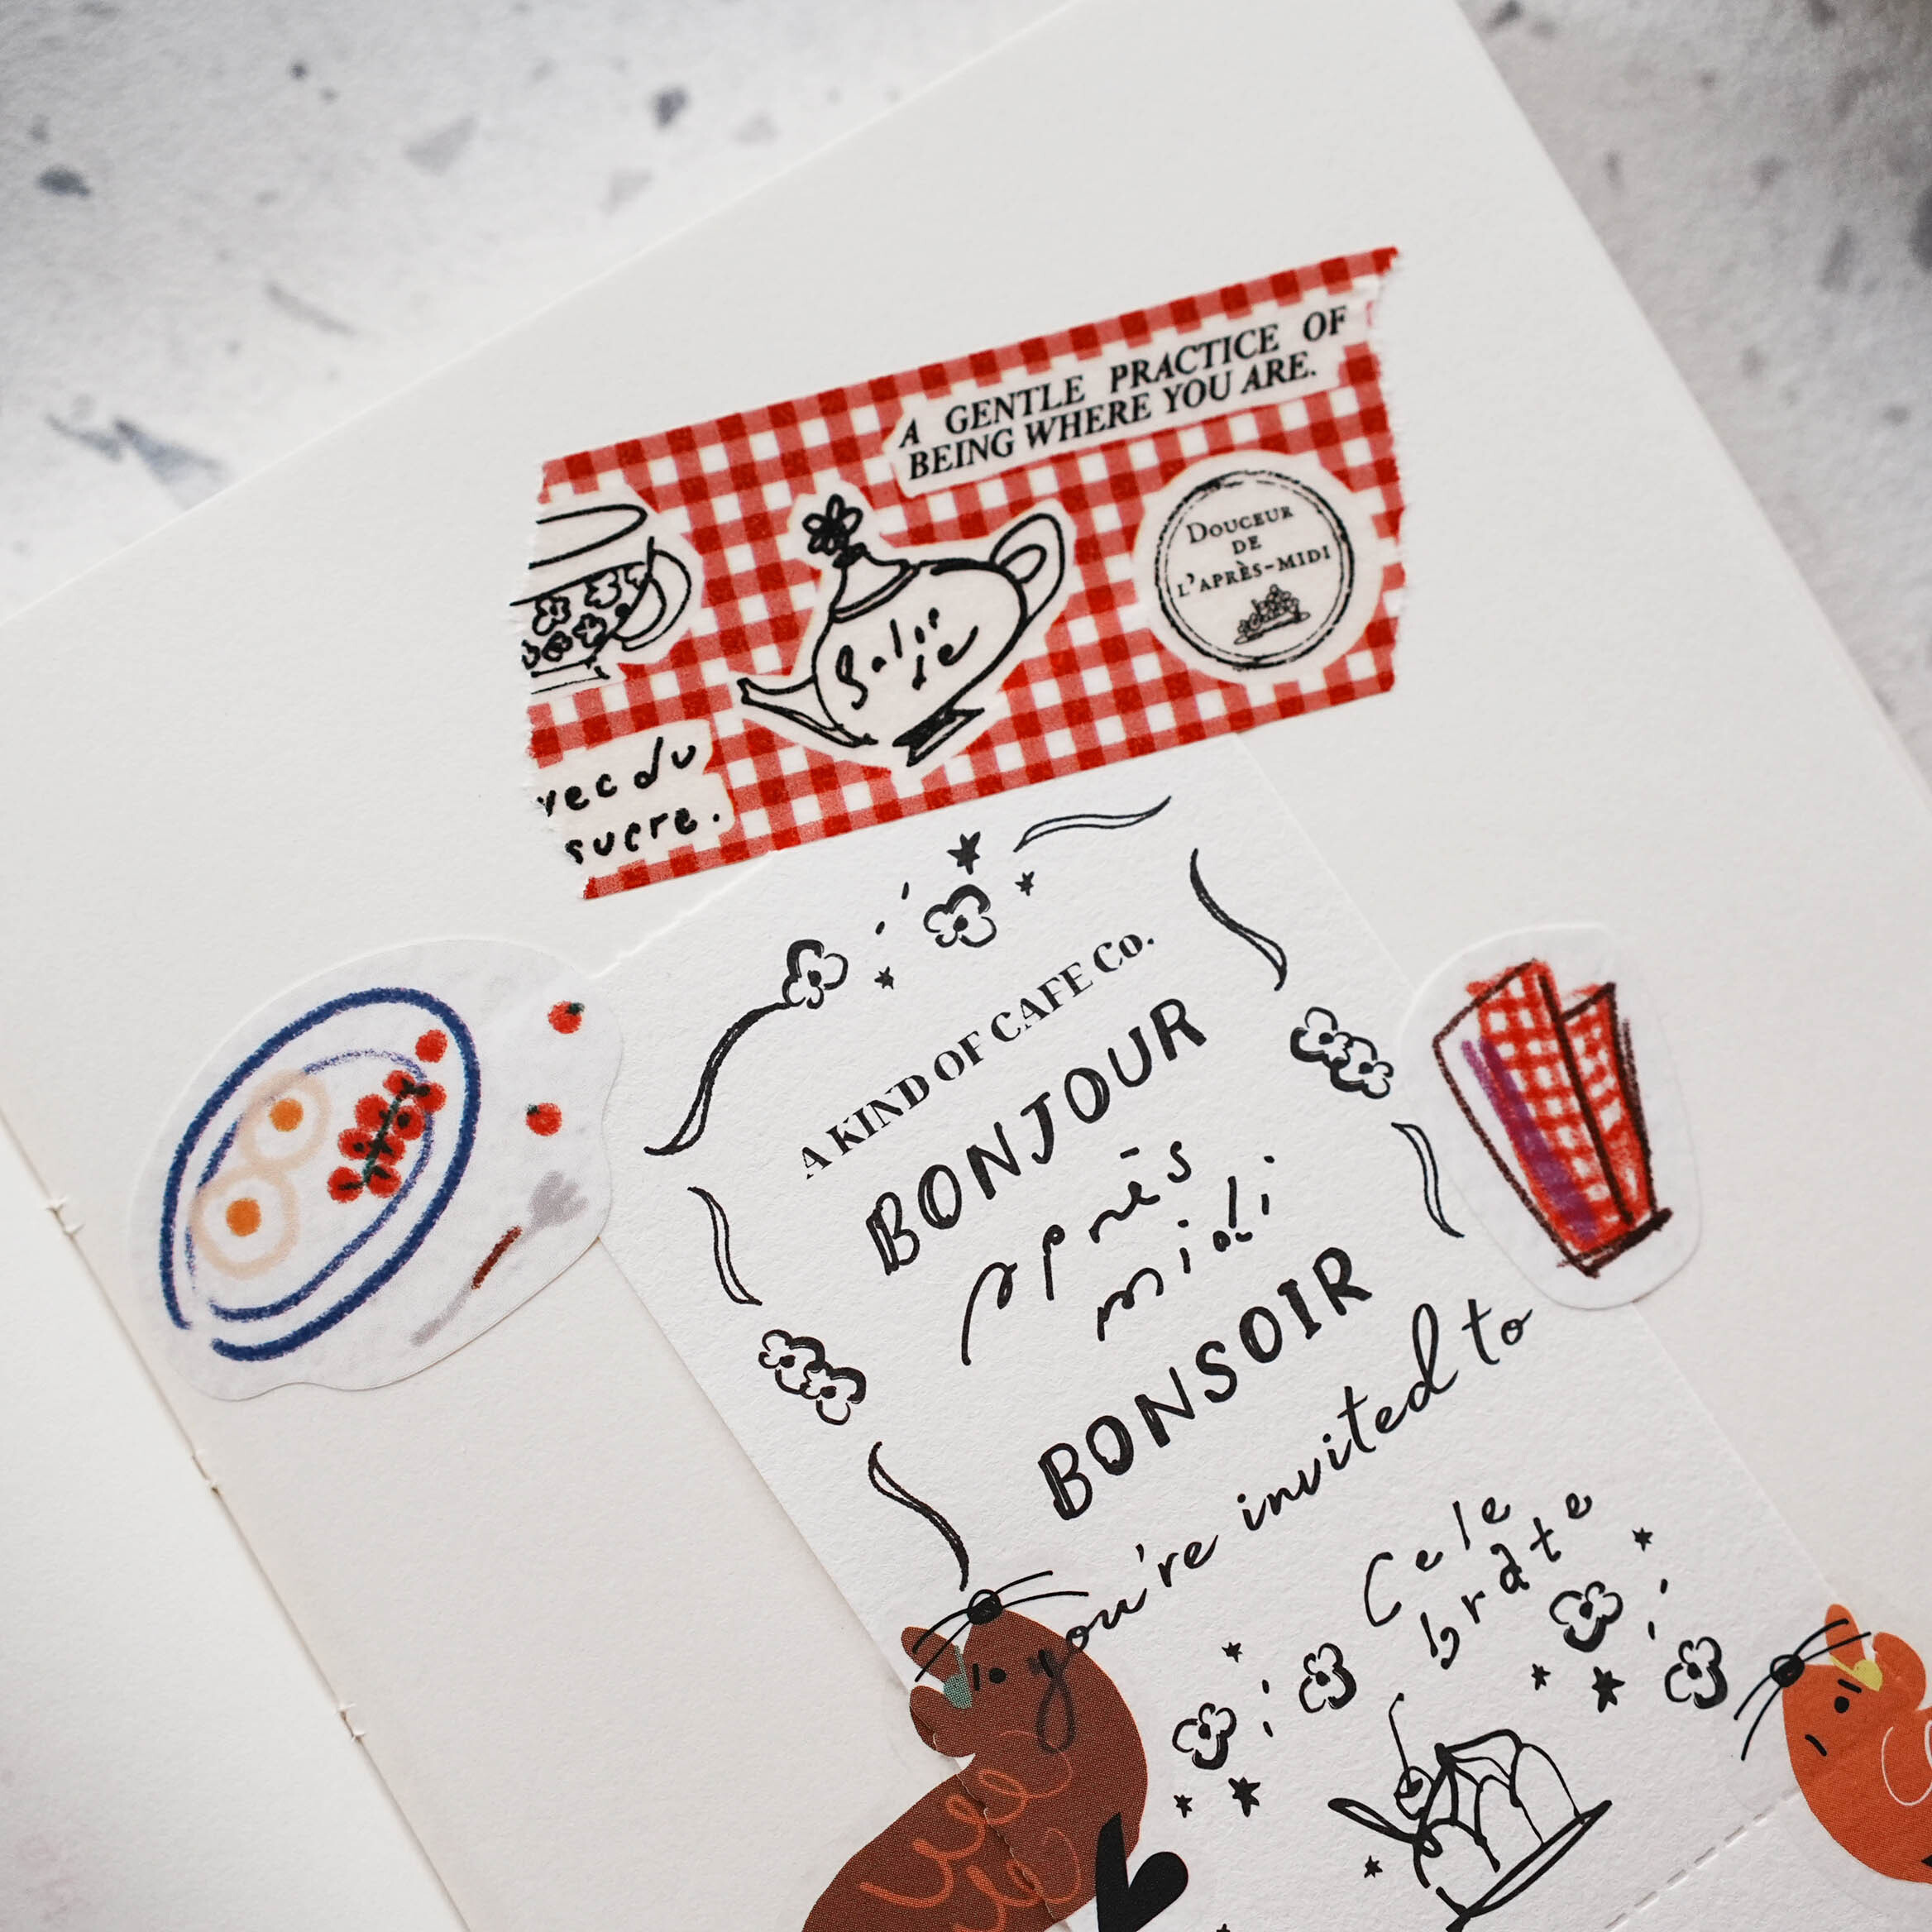 A GENTLE PRACTICE OF
BEING WHERE YOU ARE.
DOUCEUR
DE
L'APRÈS-MIDI
sucre.
A KIND OF CAFE CO.
BONJOUR
après
midi
BONSOIR
you're invited to
Cele
brate